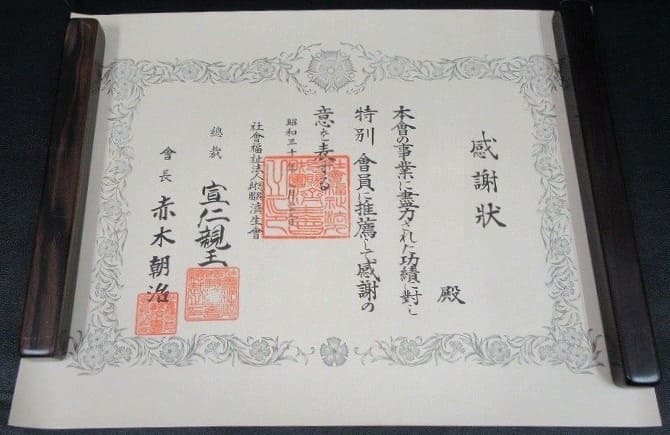 感謝狀
殿
本會の事業に盡力された功績に對し
特別會員に推薦して感謝の
意を表する
昭和三十
社會福祉法人 恩賜財團 濟生會
總裁 宣仁親王
會長 赤木朝治